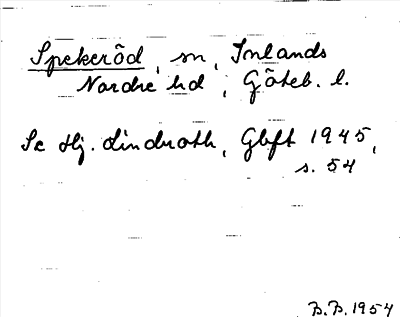 Spekeröd, sn, Inlands
Nordre hd, Göteb. l.
Se Hj. Lindroth, Gbft 1945,
s. 54
B.B. 1954